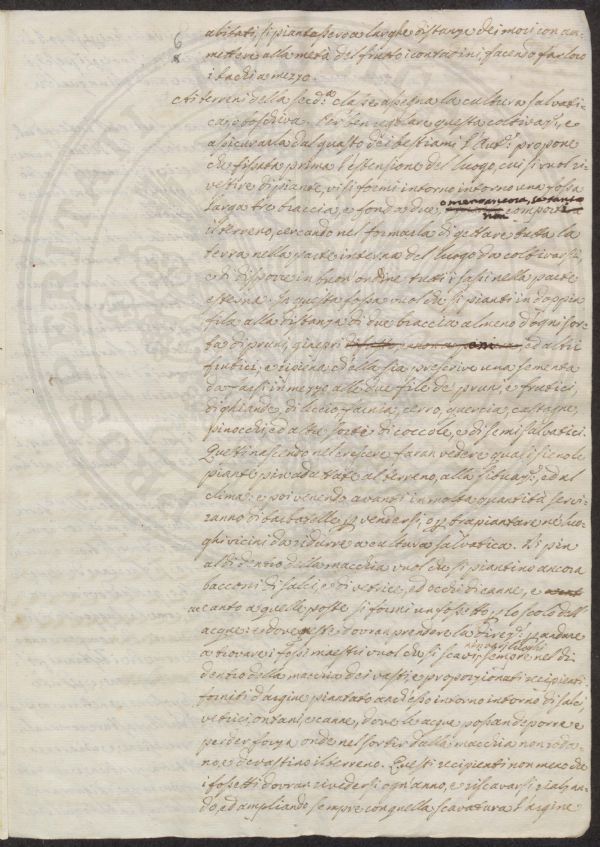 6
abitati, si piantassero a larghe distanze dei mori con am-
mettere alla metà del frutto i contadini, facendo far loro
i bachi a mezzo.
Ai terreni della secda classe assegna la cultura salvati-
ca, e boschiva. Per ben regolare questa coltivaze, e
assicurarla dal guasto dei bestiami l'Autre propone
che fissata prima l'estensione del luogo, cui si vuol ri-
vestire di piante, vi si formi intorno intorno una fossa
larga tre braccia, e fonda due, o meno ancora, se tanto non comporta
il terreno, cercando nel formarla di gettare tutta la
terra nella parte interna del luogo da coltivarsi,
e di disporre in buon'ordine tutti i sassi nella parte
esterna. In questa fossa vuol che si pianti in doppia
fila alla distanza di due braccia almeno d'ogni sor-
ta di pruni, ginepri ed altri
frutici, e ripiena ch'ella sia, prescrive una sementa
da farsi in mezzo alle due file de' pruni, e frutici,
di ghiande, di leccio, farnia, cerro, quercia, castagne,
pinocchi, ed altre sorte di coccole, e di semi salvatici.
Questi nascendo nel crescere faran vedere quali sieno le
piante più adattate al terreno, alla situaze, ed al
clima: e poi venendo avanti in molta quantità servi-
ranno di barbatelle p venderle, o p trapiantare ne' luo-
ghi vicini da ridurre a cultura salvatica. Di più
al di dentro della macchia vuol che si piantino ancora
bacconi di salci, e di vetrice, ed occhi di canne, e
accanto a queste poste si formi un fossetto p lo scolo dell'
acque: e dove queste dovran prendere la direze p andare
a trovare i fossi maestri vuol che si scavin sempre nel di
dentro della macchia dei vasti, e proporzionati recipienti
forniti d'argine piantato anch'esso intorno intorno di salci,
vetrici, ontani, e canne, dove le acque possan deporre e
perder forza onde nel sortir dalla macchia non roda-
no, e devastino il terreno. Questi recipienti non meno che
i fossetti dovran rivedersi ogn'anno, e riscavarsi rialzan-
do, ed ampliando sempre con quella scavatura l'argine